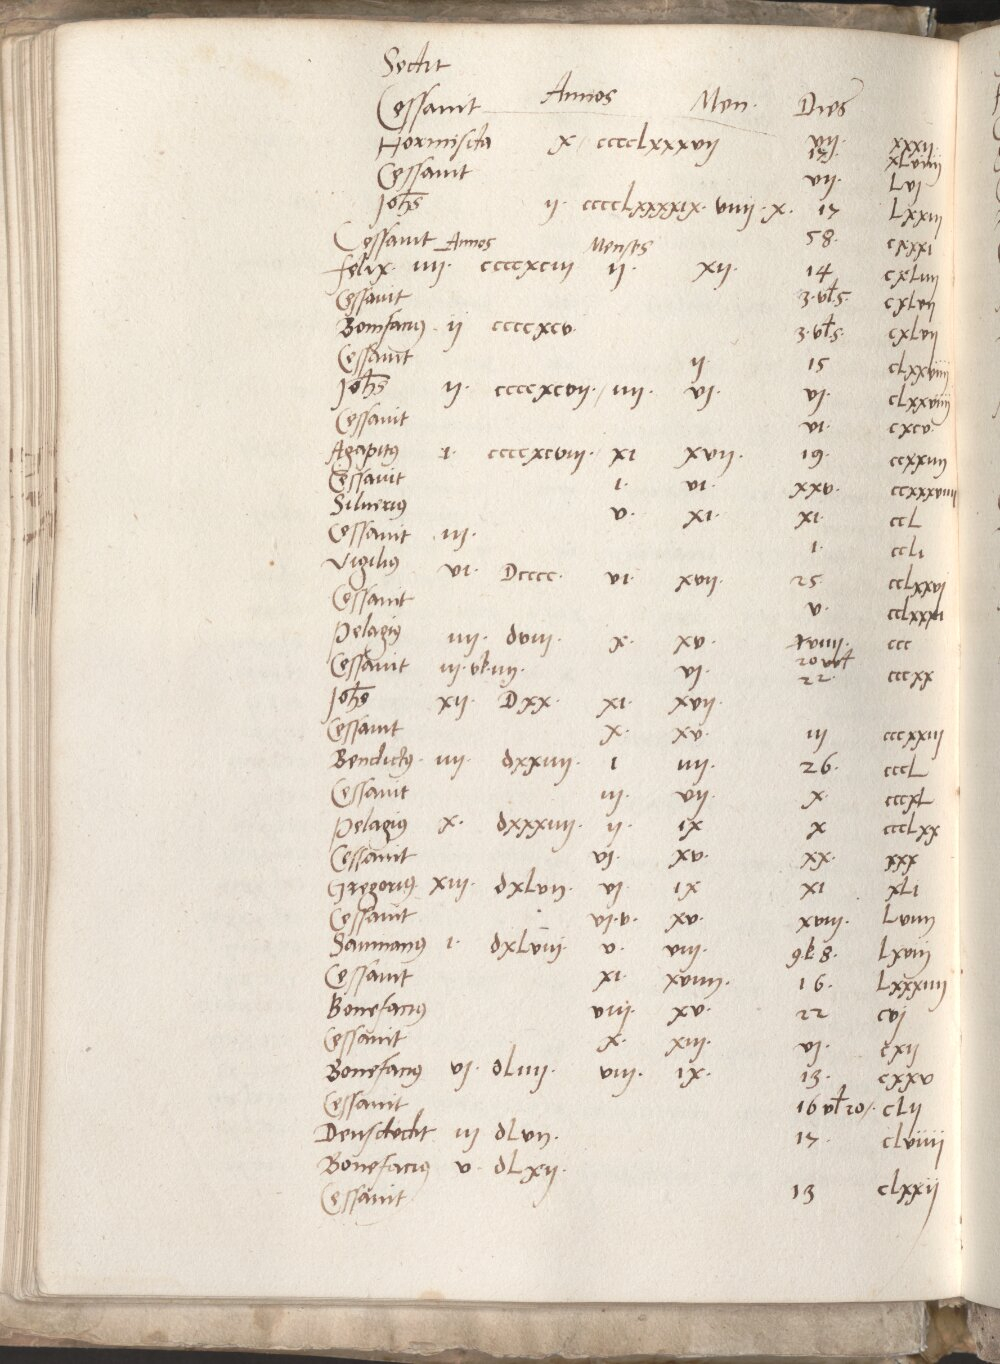 Sedit
Cessauit Annos Men. Dies
Hormisda x / cccclxxxvij vij. xxxij
Cessauit 13. xLviiij
vij. Lvj
Joħs ij. cccclxxxxix. viiij. x. 17 Lxxiij
Cessauit Annos Menses 58. cxxxi
felix. iiij. ccccxciij ij. xij. 14 cxLiiij
Cessauit 3. vƚ 5. cxLvij
Bonifacius. ij ccccxcv. 3. vƚ 5. cxLvij
Cessauit ij. 15 cLxxviiij
Joħs ij. ccccxcvij. / iiij. vj. vj. cLxxviiij
Cessauit vi. cxcv.
Agapitus 1. ccccxcviii. xi xvij. 19. ccxxiiij
Cessauit i. vi. xxv. ccxxxviiij
Siluerius v. xi. xi. ccL
Cessauit iij. 1. ccLi
Vigilius vi. Dcccc. vi xvij. 25 ccLxxvj
Cessauit v. ccLxxxi
Pelagius iiij. dviij. x. xv. xviiij. ccc
Cessauit iij. vƚ. iiij. vj. 20 vƚ 22. cccxx
Joħs xij. Dxx. xi. xvij
Cessauit x. xv. iij cccxxiij
Benedictus. iiij. dxxiiij. i iiij. 26. cccL
Cessauit iij. vij. x. cccxL
Pelagius x. dxxxiiij. ij. ix x cccLxx
Cessauit vj. xv. xx. xxx
Gregorius xiij. dxLvij. vj ix xi xLi
Cessauit vi. v. xv. xviij. Lviiij
Sauinianus i. dxLviij. v. viij. 9 vƚ 8. Lxviij
Cessauit xi. xviiij. 16. Lxxxiiij
Bonefacius viij. xv. 22 cvj
Cessauit x. xiij. vi. cxij
Bonefacius vj. dLiiij. viij. ix. 13. cxxv
Cessauit 16 vƚ 20/. cLij
Deusdedit iij dLvij. 17. cLviiij
Bonefacius v. dLxij.
Cessauit 13 cLxxij